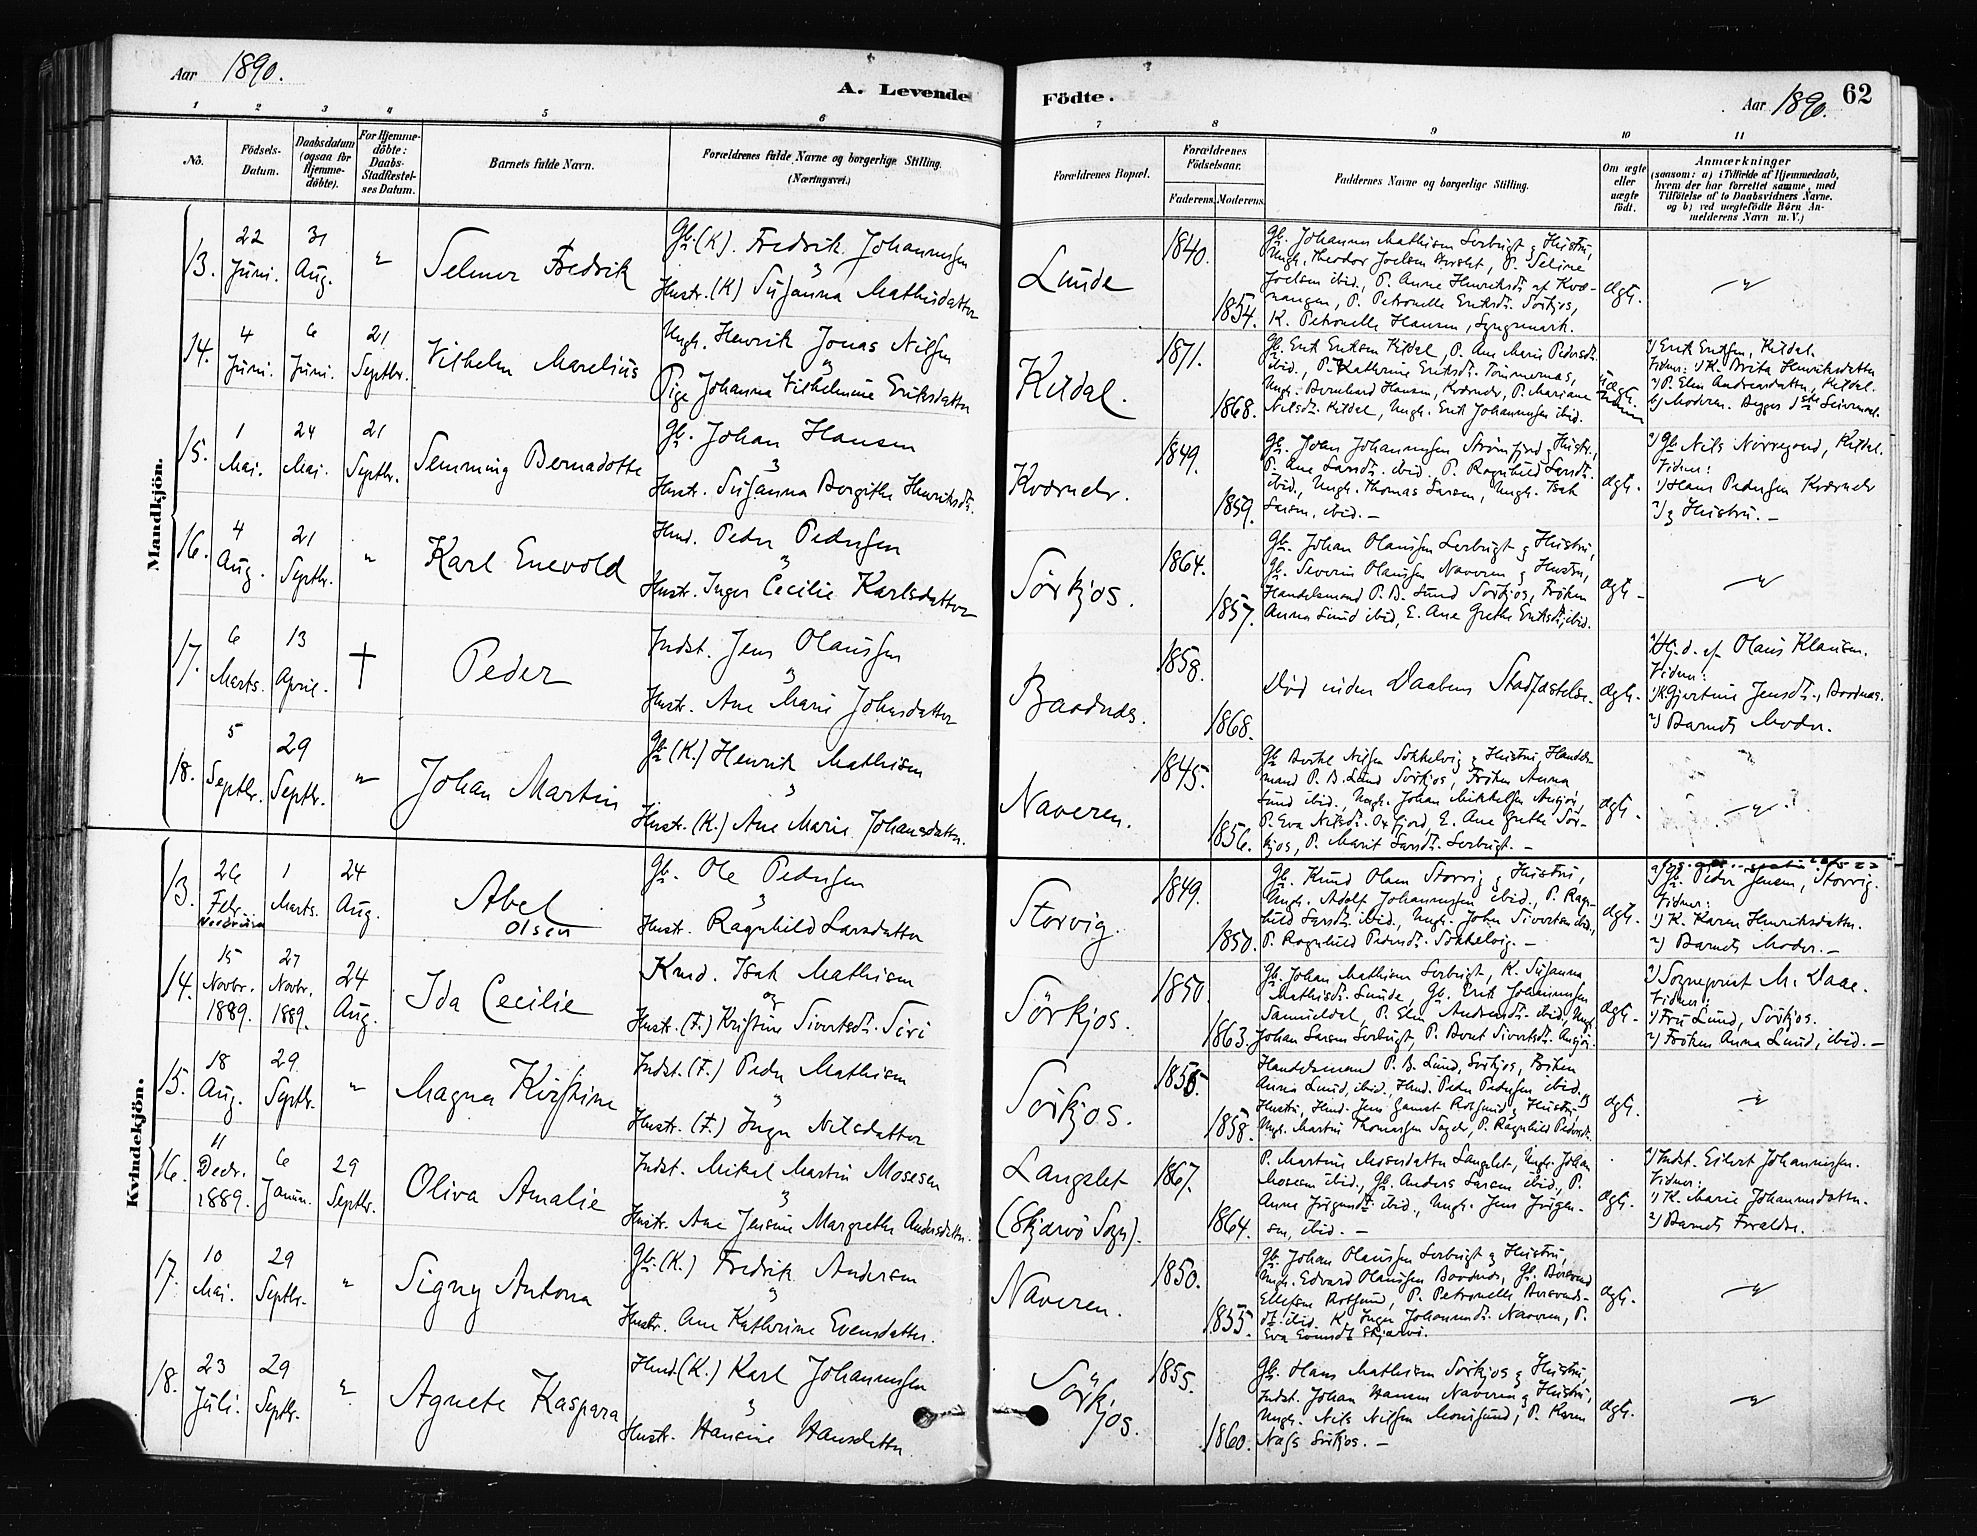 Aar 1890.
A. Levende Födte.
Aar 1890.
62
1 2 3 4 5 6 7 8 9 10 11
Nö.
Födsels-
Datum.
Daabsdatum
(ogsaa for
Hjemme-
döbte).
For Hjemme-
döbte:
Daabs-
Stadfæstel-
ses Datum.
Barnets fulde Navn.
Forældrenes fulde Navne og borgerlige Stilling.
(Næringsvei.)
Forældrenes Bopæl.
Forældrenes
Födselsaar.
Faderens.
Moderens.
Faddernes Navne og borgerlige Stilling.
Om ægte
eller
uægte
födt.
Anmærkninger
(saasom: a) i Tilfælde af Hjemmedaab,
hvem der har forrettet samme, med
Tilföielse af to Daabsvidners Navne.
og b) ved uægtefödte Börn An-
melderens Navn m. V.)
Mandkjön.
13.
22
Juni.
31
Aug.
"
Selmer Fredrik
Gb. (K). Fredrik Johannessen
"
Hustr. (K) Susanna Mathisdatter
Lunde
1840.
1854.
Gb. Johannes Mathisen Sorbugt & Hustru,
Joelsen ibid., P. Anne Henriksdt. af Kvæ-
nangen, P. Petronelle Eriksdt. Sörkjos,
K. Petronelle Hansen, Lyngsmark.
ægt.
"
14.
4
Juni.
6
Juni.
21
Septbr.
Vilhelm Marelius
Ungk. Henrik Jonas Nilsen
"
Pige Johanna Vilhelmine Eriksdatter
Kildal.
1871.
1868.
Gb. Erik Eriksen Kildal, P. Ane Marie Pedersdt.
ibid., P. Kathrine Eriksdt.
Ungk. Bernhard Hansen, Kvænnes, P. Mariane
Nilsdt. Kildal, Ungk. Erik Johannessen ibid.
a) Erik Eriksen, Kildal.
Vidner: 1) K. Brita Henriksdatter
2) P. Elen Andreasdatter, Kildal.
15.
1
Mai.
24
Mai.
21
Septbr.
Semming Bernadotte
Gb. Johan Hansen
"
Hustr. Susanna Bergithe Henriksdt.
1849.
1859.
Gb. Johan Johannessen Strömfjord & Hustr.,
P. Ane Larsdt. ibid. P. Ragnhild Larsdt.
ibid., Ungk. Thomas Larsen, Ungk. Isak
Larsen, ibid. —
ægt.
a) Gb. Nils Nörregaard, Kildal.
Vidner:
1) Hans Pedersen
2) & Hustru. —
16.
4
Aug.
21
Septbr.
"
Karl Enevold
Husmd. Peder Pedersen
"
Hustr. Inger Cecilie Karlsdatter
Sörkjos.
1864.
1857.
Gb. Johan Olaussen Sorbugt & Hustru,
Gb. Severin Olaussen Naveren & Hustru,
Handelsmand P. B. Lund Sörkjos, Fröken
Anna Lund ibid, E. Ane Grethe Eriksdt. ibid.
ægt. —
"
17.
6
Marts.
13
April.
†
Peder
Indst. Jens Olaussen
"
Hustr. Ane Marie Johnsdatter
1858.
1868.
Död inden Daabens Stadfæstelse.
ægt.
a) Hj. d. af Olaus Klausen.
Vidner:
1) K. Gjertine Jensdt.,
2) Barnets Moder.
18.
5
Septbr.
29
Septbr.
"
Johan Martin
Gb. (K.) Henrik Mathisen
"
Hustr. (K.) Ane Marie Johansdatter.
Naveren.
1845.
1856.
mand P. B. Lund Sörkjos, Fröken Anna
Lund ibid., Ungk. Johan Mikkelsen
P. Eva Nilsdt. Oxfjord, E. Ane Grethe Sör-
kjos, P. Marit Larsdt. Sorbugt. —
ægt.
"
Kvindekjön.
13.
26
Febr.
1
Marts.
24
Aug.
Abel
Olsen
Gb. Ole Pedersen
"
Hustr. Ragnhild Larsdatter
Storvig.
1849.
1850.
Gb. Knud Olsen Storvig & Hustru,
Ungk. Adolf Johannessen ibid., P. Ragn-
hild Larsdt. ibid., Ungk. John Sivertsen ibid.,
P. Ragnhild Pedersdt. Sokkelvig. —
ægt.
a) Gb. Peder Jensen, Storvig.
Vidner:
1) K. Karen Henriksdatter.
2) Barnets Moder. —
14.
15
Novbr.
1889.
27
Novbr.
1889.
24
Aug.
Ida Cecilie
Kmd. Isak Mathisen
og
Hustr. (F.) Kristine Sivertsdt. Siri
Sörkjos.
1850.
1863.
Gb. Johan Mathisen Sorbugt, K. Susanna
Mathisdt. Lunde, Gb. Erik Johannessen
Samueldal, P. Elen Andreasdt. ibid., Ungk.
Johan Larsen Sorbugt, P. Berit Sivertsdt.
ægt. —
a) Sogneprest M. Daae.
Vidner:
1) Fru Lund, Sörkjos.
2) Fröken Anna Lund, ibid. —
15.
18
Aug.
29
Septbr.
"
Magna Kristine
Indst. (F.) Peder Mathisen
"
Hustr. (F.) Inger Nilsdatter
Sörkjos.
1856.
1858.
Handelsmand P. B. Lund, Sörkjos, Fröken
Anna Lund, ibid., Husmd. Peder Pedersen ibid. &
Hustru, Husmd. Jens Rotsund & Hustru,
Ungk. Martin Thomassen P. Ragnhild Pedersdt.
ægt.
"
16.
11
Decbr.
1889.
6
Januar.
29
Septbr.
Oliva Amalie
Indst. Mikal Martin Mosesen
"
Hustr. Ane Jensine Margrethe Andersdatter.
Langslet
(Skjervö Sogn).
1867.
1864.
P. Martine Mosesdatter Langslet, Ungk. Johan
Mosesen ibid., Gb. Anders Larsen ibid., P.
Anne Jörgensdt. ibid., Ungk. Jens Jörgen-
sen, ibid. —
ægt.
a) Indst. Eilert Johannessen.
Vidner:
1) K. Marie Johannesdatter.
2) Barnets Forældre.
17.
10
Mai.
29
Septbr.
"
Signy Antona
Gb. (K.) Fredrik Andersen
"
Hustr. Ane Kathrine Evensdatter.
Naveren.
1850.
1855.
Gb. Johan Olaussen Sorbugt & Hustru,
Ungk. Edvard Olaussen
Ellefsen Rotsund, P. Petronelle
ibid. K. Inger Johannesdt. Naveren, P.
Eva Evensdt. Skjervö.
ægt.
"
18.
23
Juli.
29
Septbr.
"
Agnete Kaspara
Husmd. (K.) Karl Johannessen
"
Hustr. Hansine Hansdatter.
Sörkjos.
1855.
1860.
Gb. Hans Mathisen Sörkjos & Hustru,
Indst. Johan Hansen Naveren & Hustru,
Ungk. Nils Nilsen P. Karen
Sörkjos. —
ægt.
"